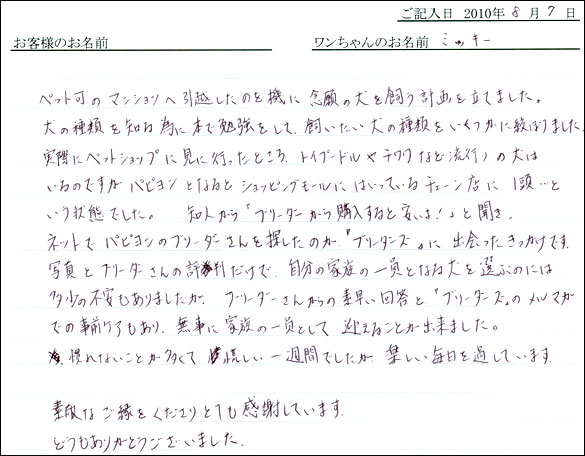 ご記入日 2010年 8月 7日
お客様のお名前 ワンちゃんのお名前 ミッキー
ペット可のマンションへ引越したのを機に念願の犬を飼う計画を立てました。
犬の種類を知る為に本で勉強をして、飼いたい犬の種類をいくつかに絞りました。
実際にペットショップに見に行ったところ、トイプードルやチワワなど流行りの犬は
いるのですがパピヨンとなるとショッピングモールにはいっているチェーン店に1頭…と
いう状態でした。 知人から「ブリーダーから購入すると安いよ!」と聞き、
ネットでパピヨンのブリーダーさんを探したのが『ブリーダーズ』に出会ったきっかけです。
写真とブリーダーさんの評判だけで、自分の家族の一員となる犬を選ぶのには
多少の不安もありましたが、ブリーダーさんからの素早い回答と『ブリーダーズ』のメルマガ
での事前ケアもあり、無事に家族の一員として迎えることが出来ました。
慣れないことが多くて慌しい一週間でしたが、楽しい毎日を過しています。
素敵なご縁をくださりとても感謝しています。
どうもありがとうございました。